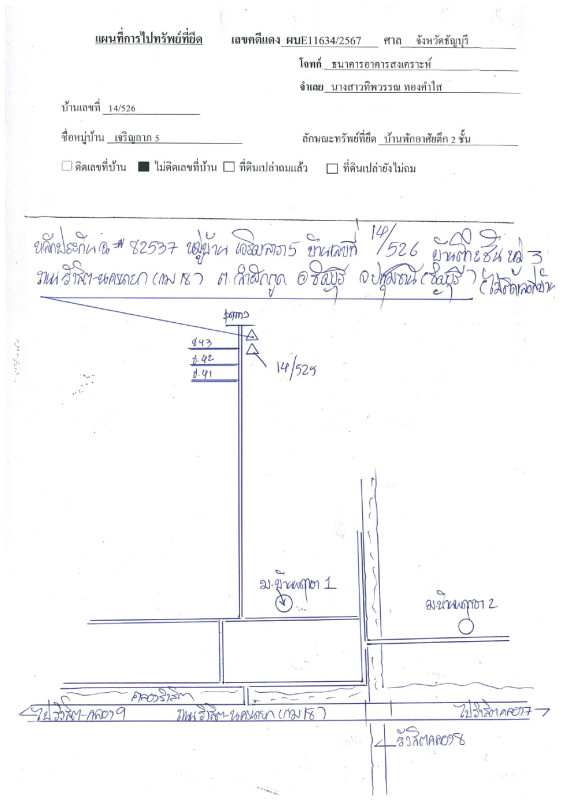 แผนที่การไปทรัพย์ที่ยึด เลขคดีแดง ผบE11634/2567 ศาล จังหวัดธัญบุรี
โจทก์ ธนาคารอาคารสงเคราะห์
จำเลย นางสาวทิพวรรณ ทองคำใส
บ้านเลขที่ 14/526
ชื่อหมู่บ้าน เจริญลาภ 5 ลักษณะทรัพย์ที่ยึด บ้านพักอาศัยตึก 2 ชั้น
ติดเลขที่บ้าน ไม่ติดเลขที่บ้าน ที่ดินเปล่าถมแล้ว ที่ดินเปล่ายังไม่ถม
82537 หมู่บ้าน 5 บ้านเลขที่ 14/526 3
ถนนรังสิต-นครนายก ต. อ.ธัญบุรี จ.ปทุมธานี (ธัญบุรี)
ซ.43
ซ.42
ซ.41
14/525
ม.บ้านพฤกษา 1
ม.บ้านพฤกษา 2
คลองรังสิต
ไปรังสิต-คลอง 9 ถนนรังสิต-นครนายก ไปรังสิตคลอง 7
รังสิตคลอง 8